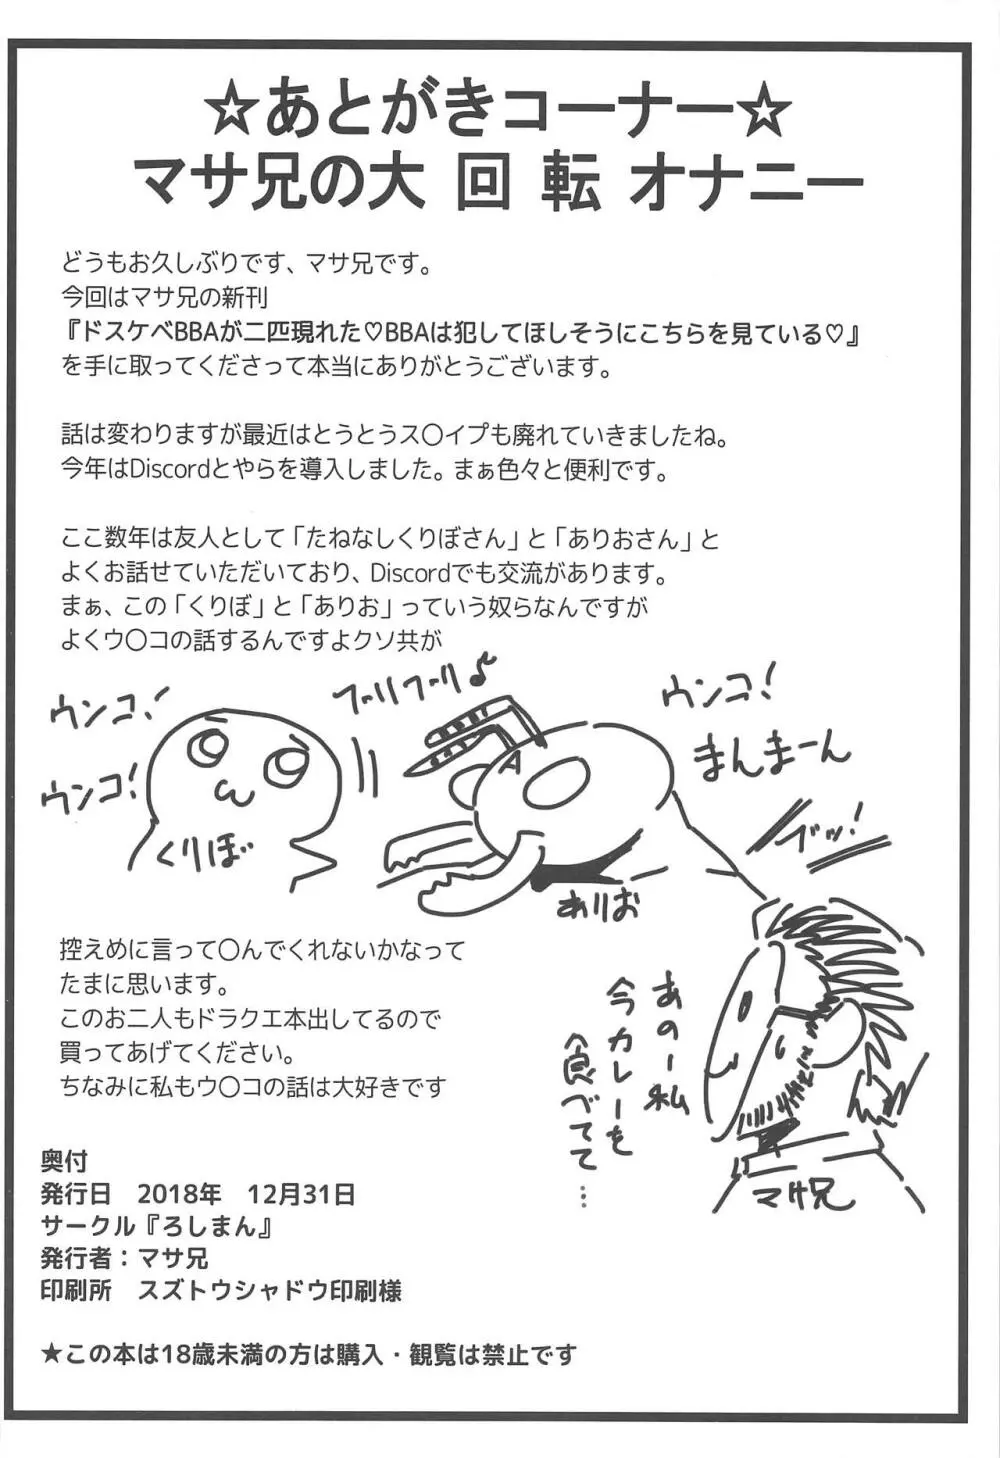 ☆あとがきコーナー☆
マサ兄の大 回 転 オナニー
どうもお久しぶりです、マサ兄です。
今回はマサ兄の新刊
『ドスケベBBAが二匹現れた♡BBAは犯してほしそうにこちらを見ている♡』
を手に取ってくださって本当にありがとうございます。
話は変わりますが最近はとうとうス〇イプも廃れていきましたね。
今年はDiscordとやらを導入しました。まぁ色々と便利です。
ここ数年は友人として「たねなしくりぼさん」と「ありおさん」と
よくお話せていただいており、Discordでも交流があります。
まぁ、この「くりぼ」と「ありお」っていう奴らなんですが
よくウ〇コの話するんですよクソ共が
ウンコ!
ウンコ!
くりぼ
フーリフーリ♪
A
ありお
ウンコ!
まんまーん
ブッ!
あのー私
今カレーを
食べてて…
マサ兄
控えめに言って〇んでくれないかなって
たまに思います。
このお二人もドラクエ本出してるので
買ってあげてください。
ちなみに私もウ〇コの話は大好きです
奥付
発行日　2018年　12月31日
サークル『ろしまん』
発行者：マサ兄
印刷所　スズトウシャドウ印刷様
★この本は18歳未満の方は購入・観覧は禁止です